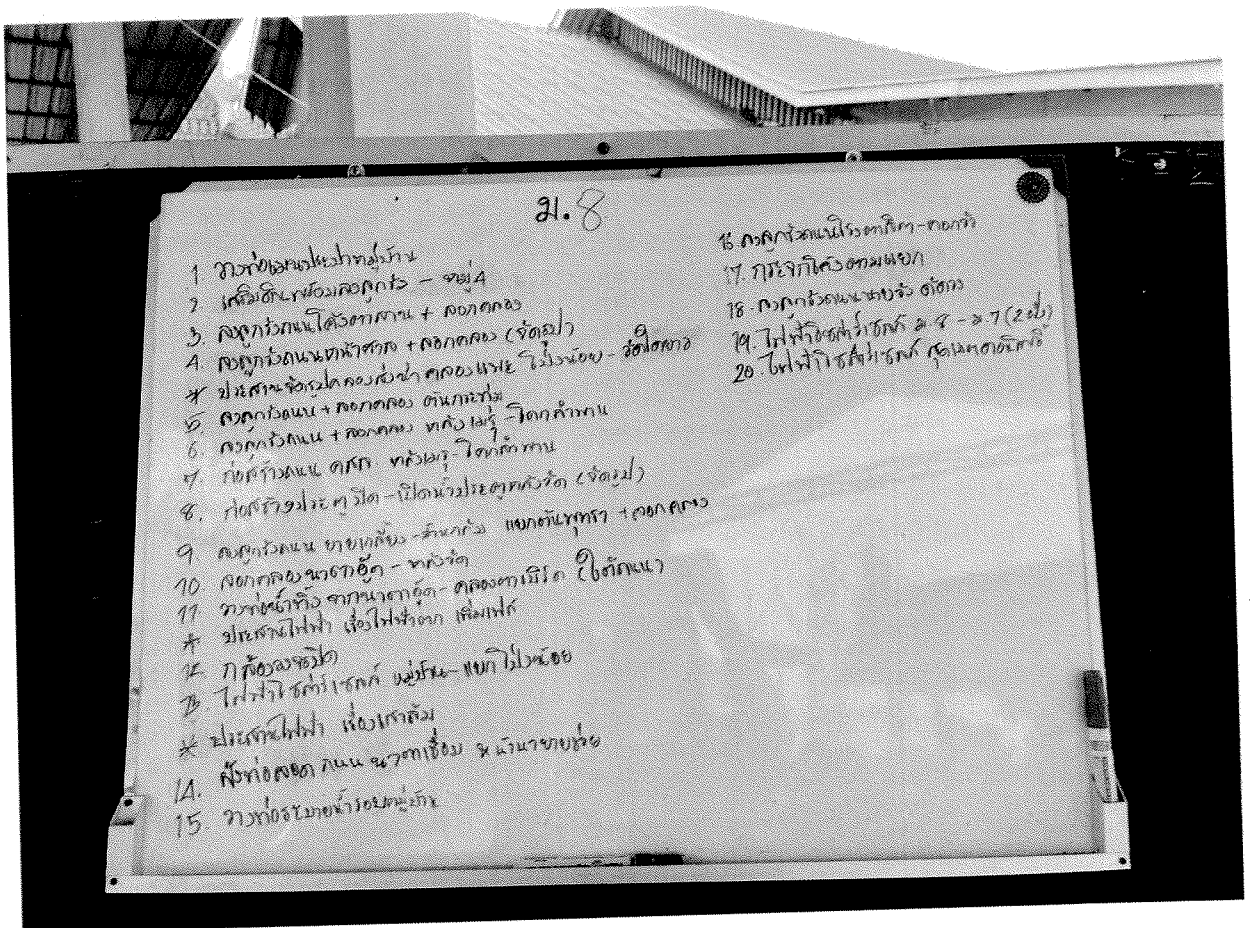 ม.8
1 วางท่อเมนประปาหมู่บ้าน
2. เสริมดินพร้อมลงลูกรัง - หมู่ 4
3. ลงลูกรังถนนโค้งตาสาน + ลอกคลอง
4. ลงลูกรังถนนหน้าศาล + ลอกคลอง (จัดรูป)
* ประสานจัดรูปคลองส่งน้ำ คลองแพะ โป่งน้อย - วัด
5. ลงลูกรังถนน + ลอกคลอง ต้นกระทุ่ม
6. ลงลูกรังถนน + ลอกคลอง หลังเมรุ - โคกลำพาน
7. ก่อสร้างถนน คสล. หลังเมรุ - โคกลำพาน
8. ก่อสร้างประตูปิด - เปิดน้ำประตูหลังวัด (จัดรูป)
9. ลงลูกรังถนน ยายเกลี้ยง - แยกต้นพุทรา + ลอกคลอง
10 ลอกคลองนาตาอู๊ด - หลังวัด
11. วางท่อน้ำทิ้ง จากนาตาอู๊ด - คลองตาเบิร์ด (ใต้ถนน)
* ประสานไฟฟ้า เรื่องไฟฟ้าตก เพิ่มเฟส
12 กล้องวงจรปิด
13 ไฟฟ้าโซล่าร์เซลล์ หมู่บ้าน - แยกโป่งน้อย
* ประสานไฟฟ้า เรื่องเสาล้ม
14. ฝังท่อลอดถนน นาตาเชื่อม หน้านายายช่วย
15. วางท่อระบายน้ำรอบหมู่บ้าน
16. ลงลูกรังถนนโรงตาสีดา -
17. กระจกโค้งตามแยก
18. ลงลูกรังถนนนายจัง
19. ไฟฟ้าโซล่าร์เซลล์ ม.8 - ม.7 (2 ฝั่ง)
20 ไฟฟ้าโซล่าร์เซลล์ สุดเขต